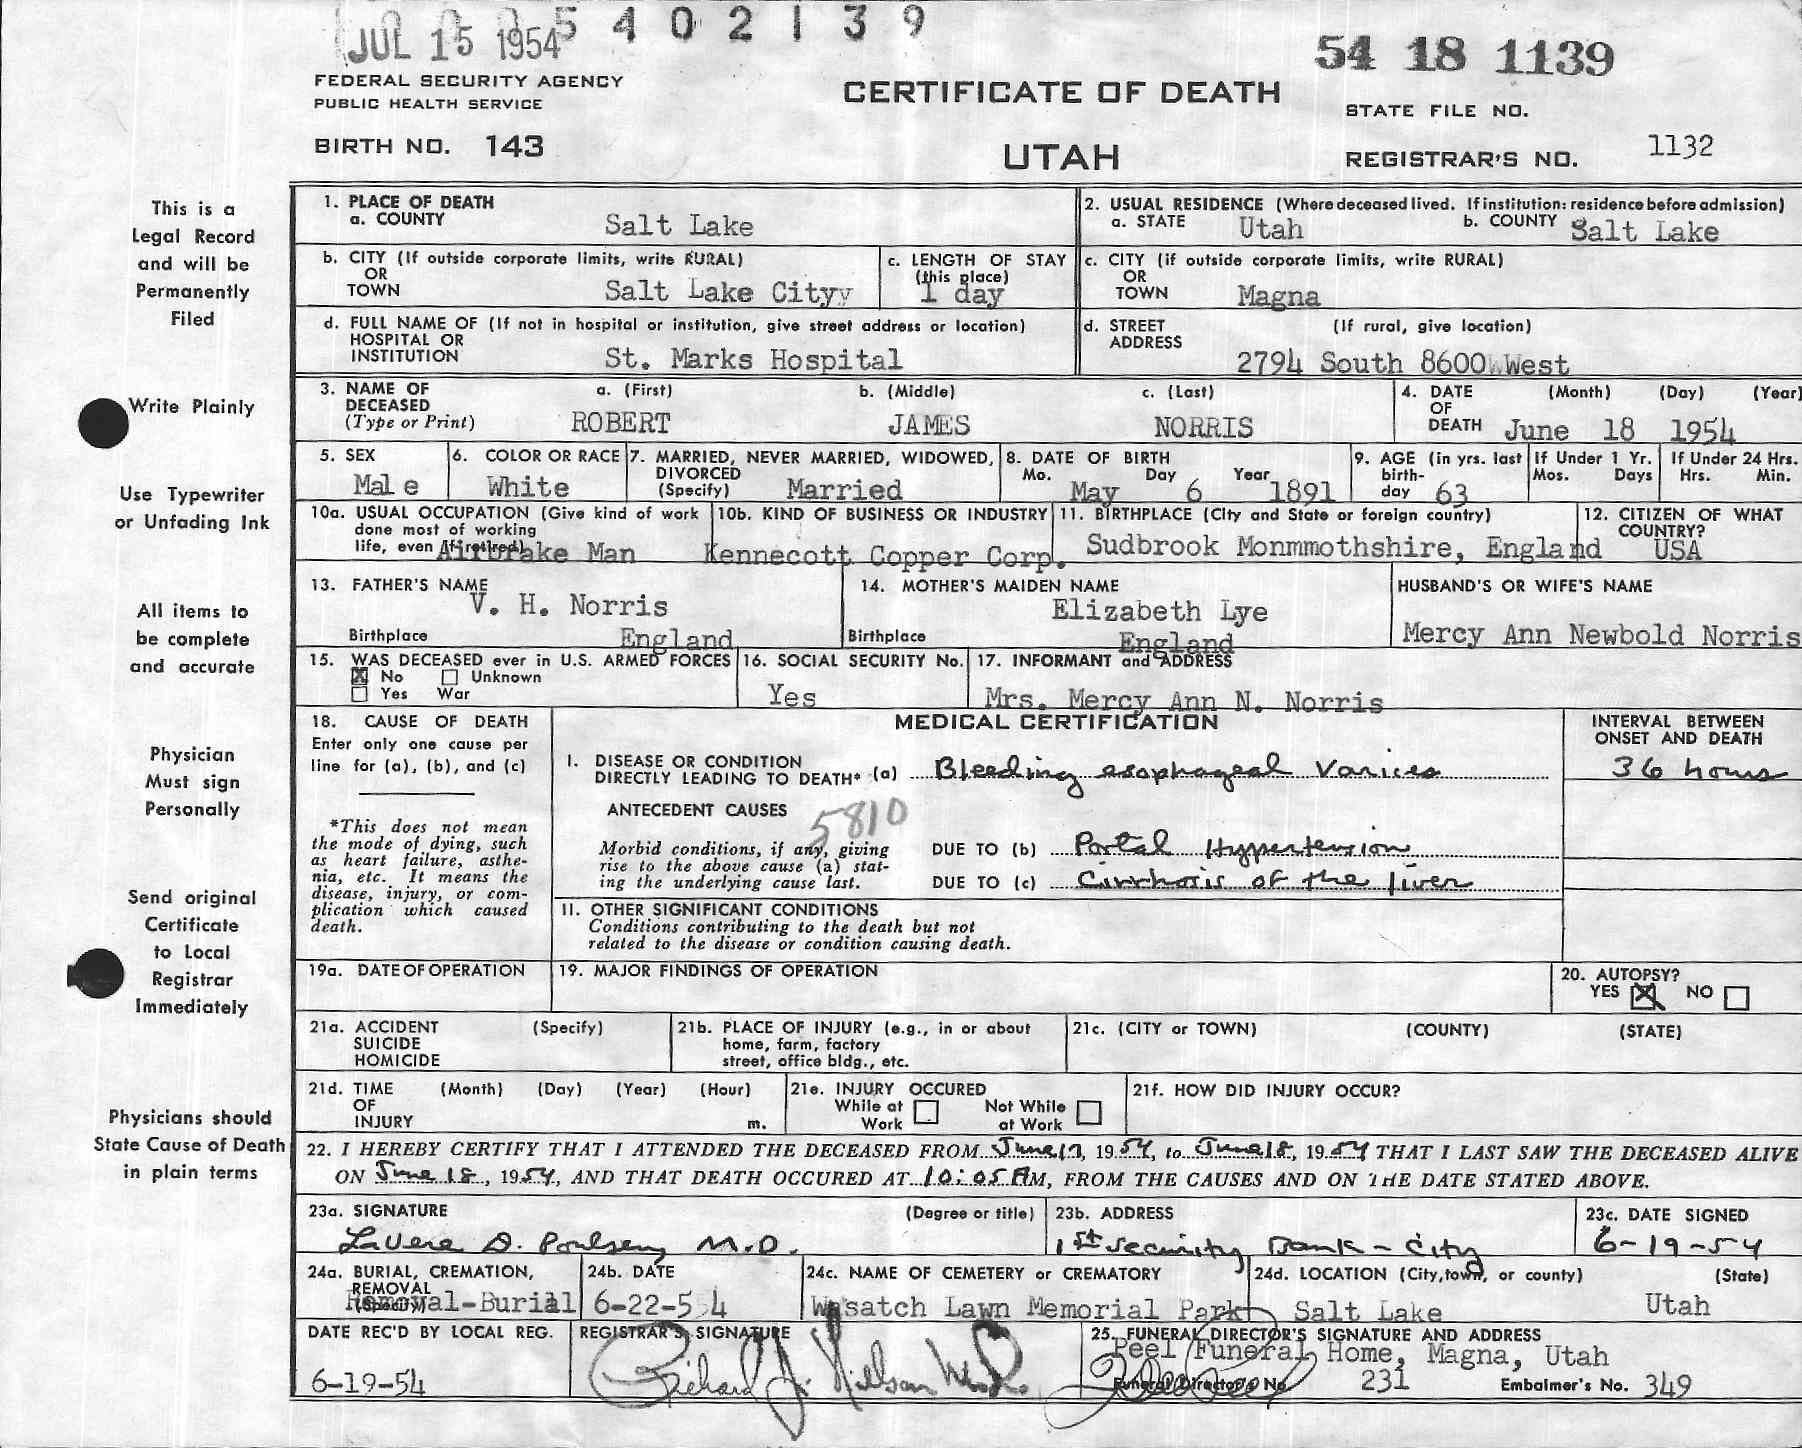 JUL 15 1954 5 4 0 2 1 3 9
54 18 1139
FEDERAL SECURITY AGENCY
PUBLIC HEALTH SERVICE
CERTIFICATE OF DEATH
STATE FILE NO.
BIRTH NO. 143
UTAH
REGISTRAR'S NO. 1132
This is a
Legal Record
and will be
Permanently
Filed
Write Plainly
Use Typewriter
or Unfading Ink
All items to
be complete
and accurate
Physician
Must sign
Personally
Send original
Certificate
to Local
Registrar
Immediately
Physicians should
State Cause of Death
in plain terms
1. PLACE OF DEATH
a. COUNTY Salt Lake
2. USUAL RESIDENCE (Where deceased lived. If institution: residence before admission)
a. STATE Utah b. COUNTY Salt Lake
b. CITY (If outside corporate limits, write RURAL)
OR
TOWN Salt Lake Cityy
c. LENGTH OF STAY
(this place)
1 day
c. CITY (if outside corporate limits, write RURAL)
OR
TOWN Magna
d. FULL NAME OF (If not in hospital or institution, give street address or location)
HOSPITAL OR
INSTITUTION St. Marks Hospital
d. STREET (If rural, give location)
ADDRESS
2794 South 8600 West
3. NAME OF a. (First) b. (Middle) c. (Last)
DECEASED
(Type or Print) ROBERT JAMES NORRIS
4. DATE (Month) (Day) (Year)
OF
DEATH June 18 1954
5. SEX
Male
6. COLOR OR RACE
White
7. MARRIED, NEVER MARRIED, WIDOWED,
DIVORCED
(Specify) Married
8. DATE OF BIRTH
Mo. Day Year
May 6 1891
9. AGE (in yrs. last
birth-
day 63
If Under 1 Yr.
Mos. Days
If Under 24 Hrs.
Hrs. Min.
10a. USUAL OCCUPATION (Give kind of work
done most of working
life, even if retired) Airbrake Man
10b. KIND OF BUSINESS OR INDUSTRY
Kennecott Copper Corp.
11. BIRTHPLACE (City and State or foreign country)
Sudbrook Monmmothshire, England
12. CITIZEN OF WHAT
COUNTRY?
USA
13. FATHER'S NAME
V. H. Norris
Birthplace England
14. MOTHER'S MAIDEN NAME
Elizabeth Lye
Birthplace England
HUSBAND'S OR WIFE'S NAME
Mercy Ann Newbold Norris
15. WAS DECEASED ever in U.S. ARMED FORCES
No Unknown
Yes War
16. SOCIAL SECURITY No.
Yes
17. INFORMANT and ADDRESS
Mrs. Mercy Ann N. Norris
18. CAUSE OF DEATH
Enter only one cause per
line for (a), (b), and (c)
*This does not mean
the mode of dying, such
as heart failure, asthe-
nia, etc. It means the
disease, injury, or com-
plication which caused
death.
MEDICAL CERTIFICATION
INTERVAL BETWEEN
ONSET AND DEATH
I. DISEASE OR CONDITION
DIRECTLY LEADING TO DEATH* (a) Bleeding esophageal Varices
36 hours
ANTECEDENT CAUSES
5810
Morbid conditions, if any, giving
rise to the above cause (a) stat-
ing the underlying cause last.
DUE TO (b) Portal Hypertension
DUE TO (c) Cirrhosis of the liver
II. OTHER SIGNIFICANT CONDITIONS
Conditions contributing to the death but not
related to the disease or condition causing death.
19a. DATE OF OPERATION
19. MAJOR FINDINGS OF OPERATION
20. AUTOPSY?
YES NO
21a. ACCIDENT (Specify)
SUICIDE
HOMICIDE
21b. PLACE OF INJURY (e.g., in or about
home, farm, factory
street, office bldg., etc.
21c. (CITY or TOWN) (COUNTY) (STATE)
21d. TIME (Month) (Day) (Year) (Hour)
OF
INJURY m.
21e. INJURY OCCURED
While at Work Not While at Work
21f. HOW DID INJURY OCCUR?
22. I HEREBY CERTIFY THAT I ATTENDED THE DECEASED FROM June 17, 1954, to June 18, 1954 THAT I LAST SAW THE DECEASED ALIVE
ON June 18, 1954, AND THAT DEATH OCCURED AT 10:05 AM, FROM THE CAUSES AND ON THE DATE STATED ABOVE.
23a. SIGNATURE (Degree or title)
LaVere D. Poulsen, M.D.
23b. ADDRESS
1st Security Bank - City
23c. DATE SIGNED
6-19-54
24a. BURIAL, CREMATION,
REMOVAL
(Specify) Removal-Burial
24b. DATE
6-22-54
24c. NAME OF CEMETERY or CREMATORY
Wasatch Lawn Memorial Park
24d. LOCATION (City, town, or county) (State)
Salt Lake Utah
DATE REC'D BY LOCAL REG.
6-19-54
REGISTRAR'S SIGNATURE
Richard J. Nielson M.D.
25. FUNERAL DIRECTOR'S SIGNATURE AND ADDRESS
Peel Funeral Home, Magna, Utah
Funeral Director's No. 231 Embalmer's No. 349